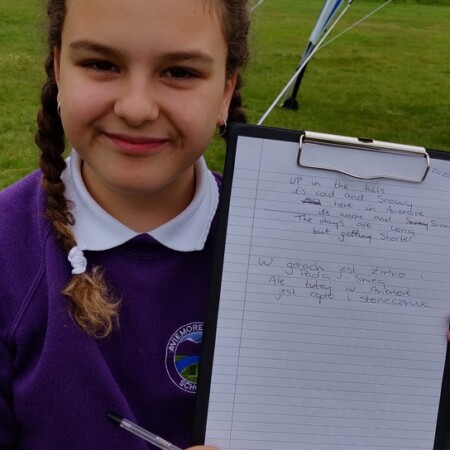 UP in the hills
its cold and snowy
here in Aviemore
its warm and
The days are long
but getting Shorter
W gorach jest zimno i
Pada snieg
Ale tutej w Aviemore
jest cepło i stonecznie
AVIEMORE
SCH